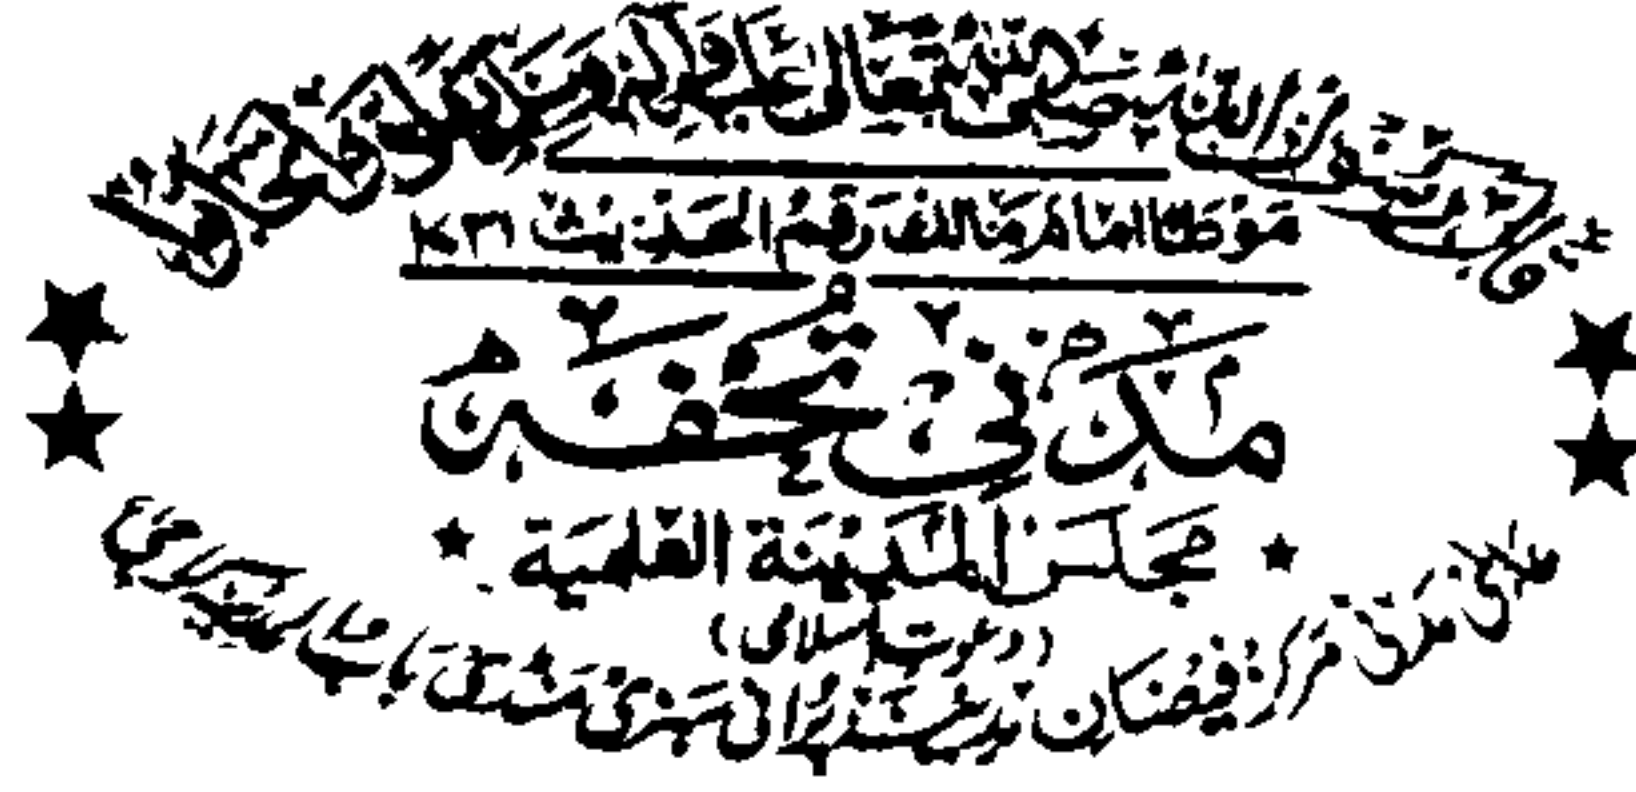 قال رسول اللہ صلی اللہ تعالیٰ علیہ واٰلہ وسلم تھادوا تحابوا
موطا امام مالک رقم الحدیث ۱۷۳۱
مدنی تحفہ
مجلس المدینۃ العلمیۃ
(دعوت اسلامی)
عالمی مدنی مرکز فیضان مدینہ پرانی سبزی منڈی باب المدینہ کراچی